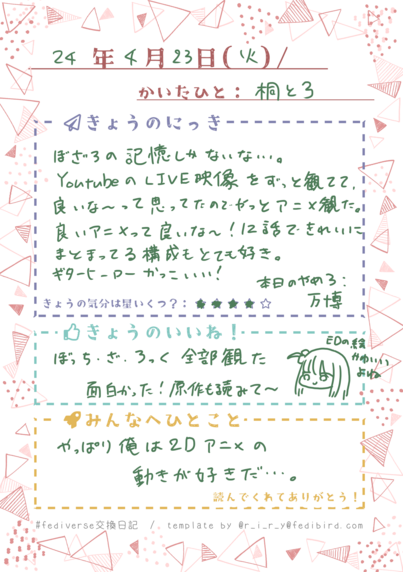 24年4月23日(火)/
かいたひと: 桐とろ
きょうのにっき
ぼざろの記憶しかないない…。
YoutubeのLIVE映像をずっと観てて、
良いな〜って思ってたのでやっとアニメ観た。
良いアニメって良いな〜!12話できれいに
まとまってる構成もとても好き。
ギターヒーローかっこいい!
本日のやめろ:
万博
きょうの気分は星いくつ?: ★★★★☆
きょうのいいね!
ぼっち・ざ・ろっく全部観た
面白かった!原作も読みて〜
EDの絵
かわいい
よね
みんなへひとこと
やっぱり俺は2Dアニメの
動きが好きだ…。
読んでくれてありがとう!
#fediverse交換日記 /. template by @r_i_r_y@fedibird.com